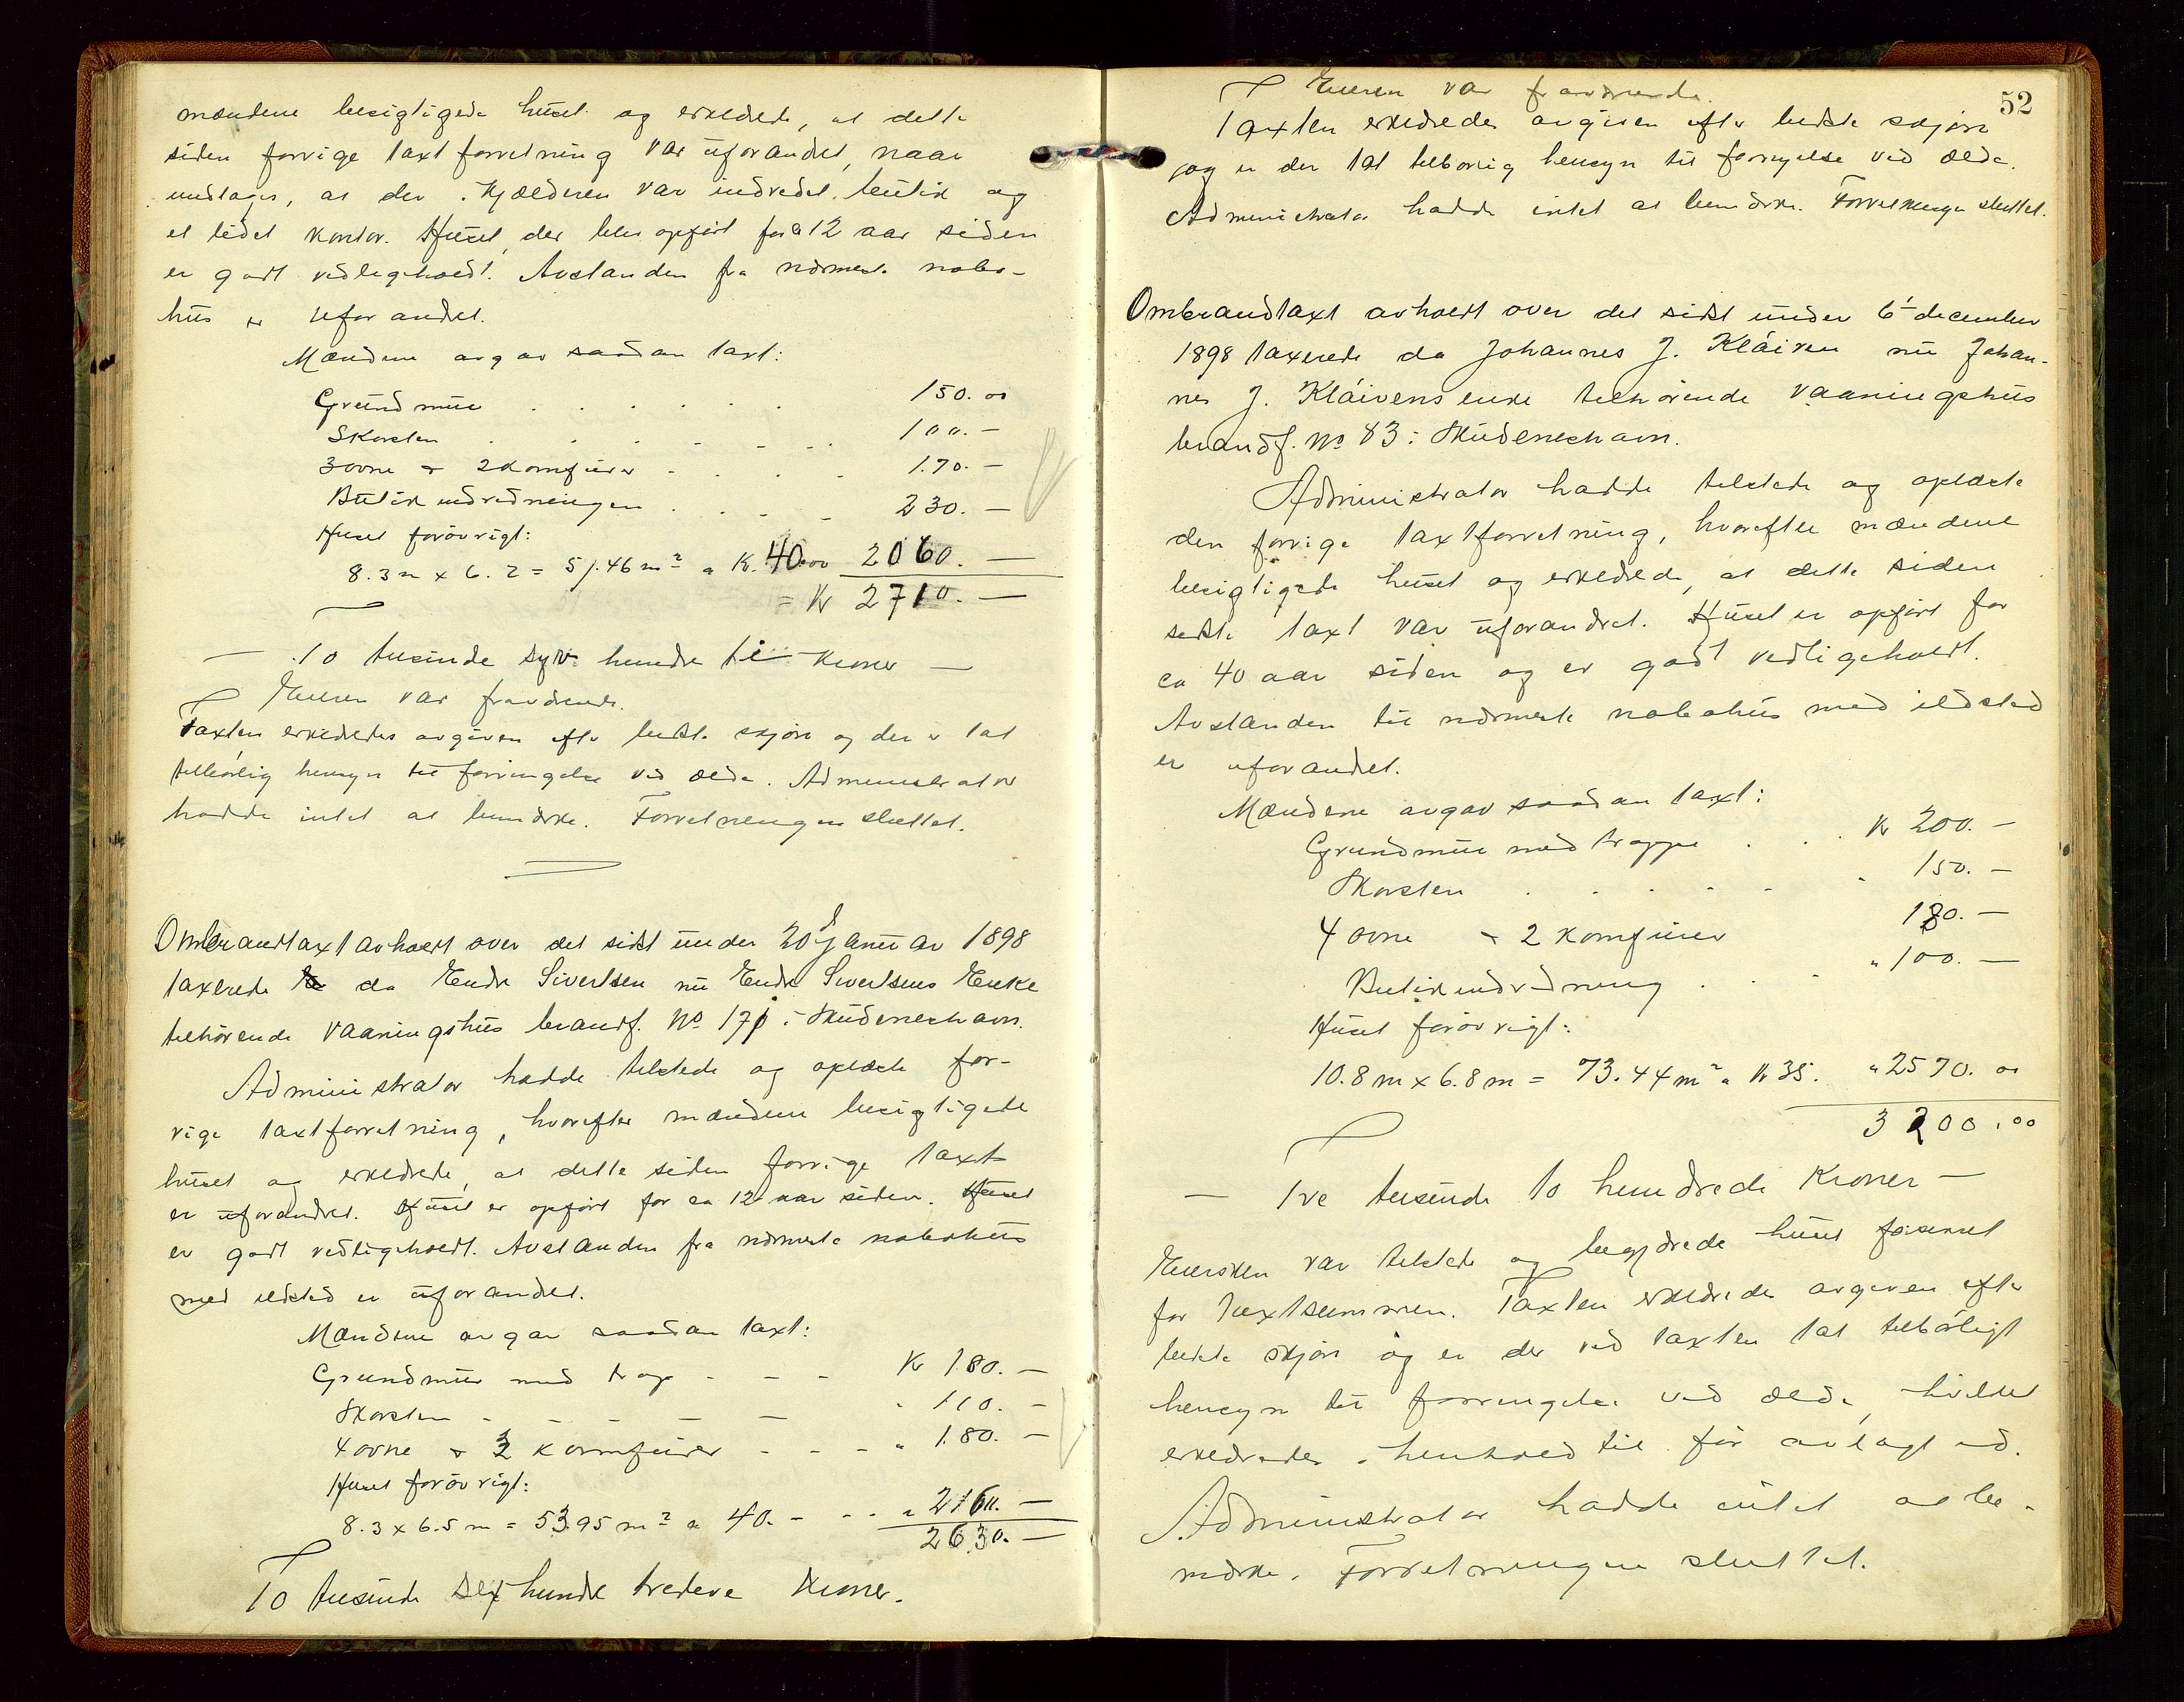 mændene besigtigede huset og erklærede, at dette
siden forrige taxtforretning var uforandret, naar
undtages, at der i kjælderen var indredet butik og
et lidet kontor. Huset, der blev opført for ca 12 aar siden
er godt vedligeholdt. Avstanden fra nærmeste nabo-
hus er uforandret.
Mændene avgav saadan taxt:
Grundmur . . . . . . 150.00
Skorsten . . . . . . 100.-
3 ovne & 2 komfurer - . . . 170.-
Butikindredningen . . . . 230.-
Huset forøvrigt:
8.3m x 6.2 = 51.46 m² a Kr. 40.00 2060.-
= Kr 2710.-
- To tusinde syv hundre ti Kroner -
Eieren var fraværende.
Taxten erklæredes avgiven efter bedste skjøn og der er tat
tilbørlig hensyn til forringelse ved ælde. Administrator
hadde intet at bemærke. Forretningen sluttet.
Ombrandtaxt avholdt over det sidst under 20 januar 1898
taxerede da Endre Sivertsen nu Endre Sivertsens Enke
tilhørende vaaningshus brandf. No 171 i Skudeneshavn.
Administrator hadde tilstede og oplæste for-
rige taxtforretning, hvorefter mændene besigtigede
huset og erklærede, at dette siden forrige taxt
er uforandret. Huset er opført for ca 12 aar siden. Huset
er godt vedligeholdt. Avstanden fra nærmeste nabohus
med ildsted er uforandret.
Mændene avgav saadan taxt:
Grundmur med trap - - - Kr 180.-
Skorsten - - - - - " 110.-
4 ovne & 2 komfurer - - - " 180.-
Huset forøvrigt:
8.3 x 6.5 m = 53.95 m² a 40.- - - " 2160.-
2630.-
To tusinde sex hundre tredeve Kroner.
52
Eieren var fraværende.
Taxten erklæredes avgiven efter bedste skjøn
og er der tat tilbørlig hensyn til forringelse ved ælde.
Administrator hadde intet at bemærke. Forretningen sluttet.
Ombrandtaxt avholdt over det sidst under 6' december
1898 taxerede da Johannes J. Kláiven nu Johan-
nes J. Kláivens enke tilhørende vaaningshus
brandf. No 83 i Skudeneshavn.
Administrator hadde tilstede og oplæste
den forrige taxtforretning, hvorefter mændene
besigtigede huset og erklærede, at dette siden
sidste taxt var uforandret. Huset er opført for
ca 40 aar siden og er godt vedligeholdt.
Avstanden til nærmeste nabohus med ildsted
er uforandret.
Mændene avgav saadan taxt:
Grundmur med trappe . . . Kr 200.-
Skorsten . . . . - - 150.-
4 ovne & 2 komfurer 180.-
Butikindredning . . . " 100.-
Huset forøvrigt:
10.8 m x 6.8 m = 73.44 m² a Kr 35. " 2570.00
3200.00
- Tre tusinde to hundrede Kroner -
Eiersken var tilstede og begjærede huset assureret
for taxtsummen. Taxten erklæredes avgiven efter
bedste skjøn og er der ved taxten tat tilbørligt
hensyn til forringelse ved ælde, hvilket
erklæredes i henhold til før avlagt ed.
Administrator hadde intet at be-
mærke. Forretningen sluttet.